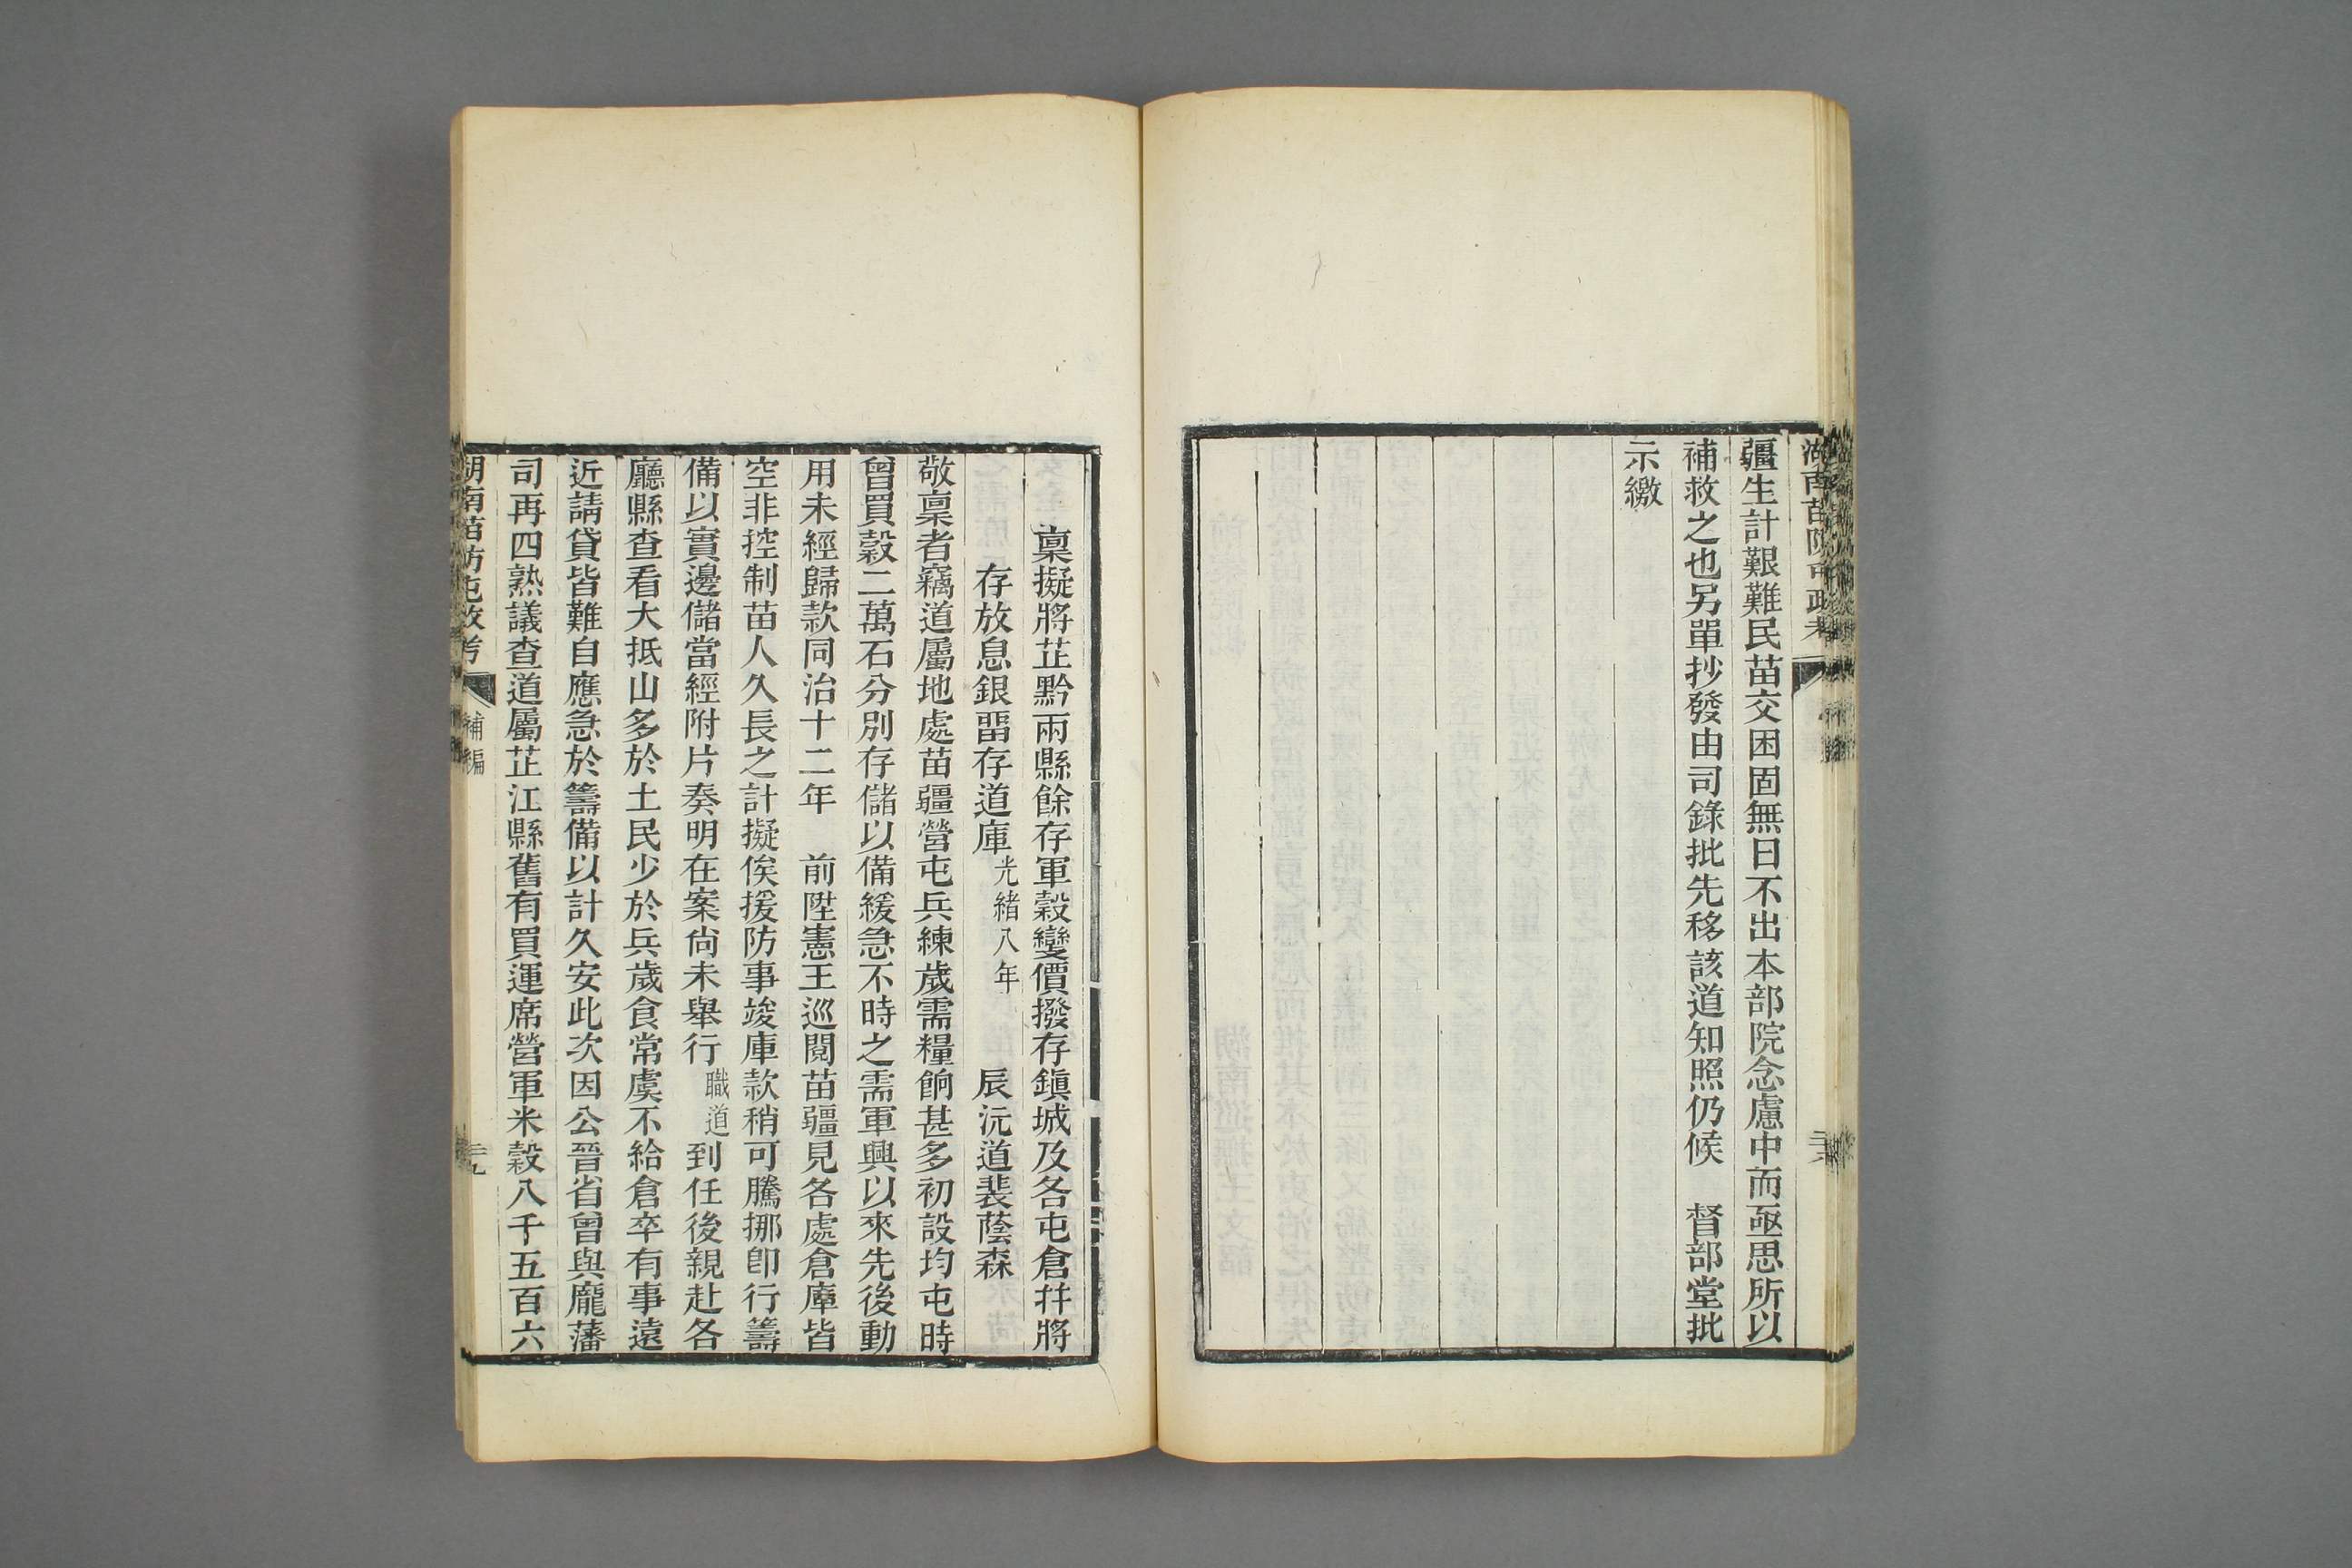 湖南苗防屯政考
疆生計艱難民苗交困固無日不出本部院念慮中而亟思所以
補救之也另單抄發由司錄批先移該道知照仍候 督部堂批
示繳
稟擬將芷黔兩縣餘存軍穀變價撥存鎭城及各屯倉幷將
存放息銀畱存道庫 光緒八年 辰沅道裴蔭森
敬稟者竊道屬地處苗疆營屯兵練歲需糧餉甚多初設均屯時
曾買穀二萬石分別存儲以備緩急不時之需軍興以來先後動
用未經歸款同治十二年 前陞憲王巡閱苗疆見各處倉庫皆
空非控制苗人久長之計擬俟援防事竣庫款稍可騰挪卽行籌
備以實邊儲當經附片奏明在案尙未舉行職道到任後親赴各
廳縣查看大抵山多於土民少於兵歲食常虞不給倉卒有事遠
近請貸皆難自應急於籌備以計久安此次因公晉省曾與龐藩
司再四熟議查道屬芷江縣舊有買運席營軍米穀八千五百六
湖南苗防屯政考 補編 三九